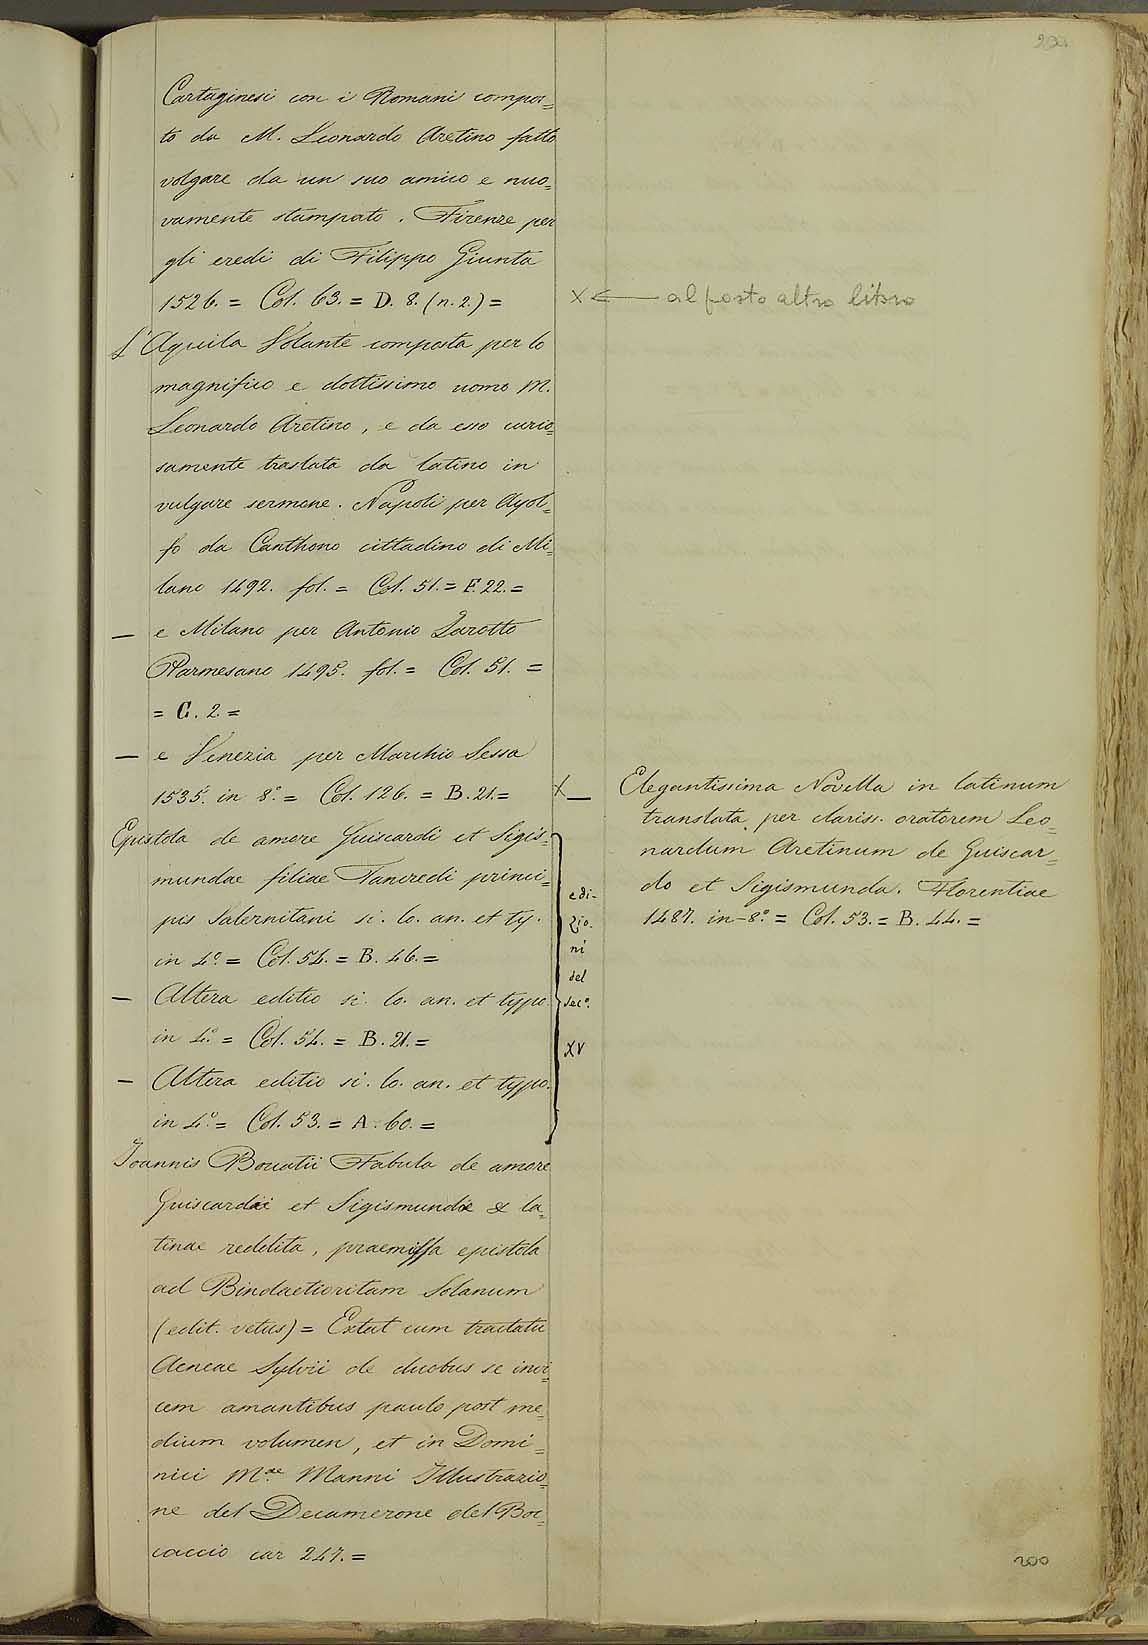 Cartaginesi con i Romani compos=
to da M. Leonardo Aretino fatto
volgare da un suo amico e nuo=
vamente stampato. Firenze per
gli eredi di Filippo Giunta
1526. = Col. 63. = D. 8. (n. 2.) =
X ← al posto altro libro
L'Aquila Volante composta per lo
magnifico e dottissimo uomo M.
Leonardo Aretino, e da esso curio=
samente traslata da latino in
vulgare sermone. Napoli per Ayol=
fo da Canthono cittadino di Mi=
lano 1492. fol. = Col. 51. = F. 22. =
— e Milano per Antonio Zarotto
Parmesano 1495. fol. = Col. 51. =
= G. 2. =
— e Venezia per Marchio Sessa
1535. in 8.° = Col. 126. = B. 21. =
Epistola de amore Guiscardi et Sigis=
mundae filiae Tancredi princi=
pis Salernitani si. lo. an. et ty.
in 4.° = Col. 54. = B. 46. =
— Altera editio si. lo. an. et typo.
in 4.° = Col. 54. = B. 21. =
— Altera editio si. lo. an. et typo.
in 4.° = Col. 53. = A. 60. =
edi-
zio-
ni
del
sec.°
XV
Joannis Bocatii Fabula de amore
Guiscardi et Sigismundae & la=
tinae reddita, praemissa epistola
ad
(edit. vetus) = Extat cum tractatu
Aeneae Sylvii de duobus se invi=
cem amantibus paulo post me=
dium volumen, et in Domi=
nici M.ae Manni Illustrazio=
ne del Decamerone del Boc=
caccio car 247. =
X — Elegantissima Novella in latinum
translata per clariss. oratorem Leo=
nardum Aretinum de Guiscar=
do et Sigismunda. Florentiae
1487. in-8.° = Col. 53. = B. 44. =
200